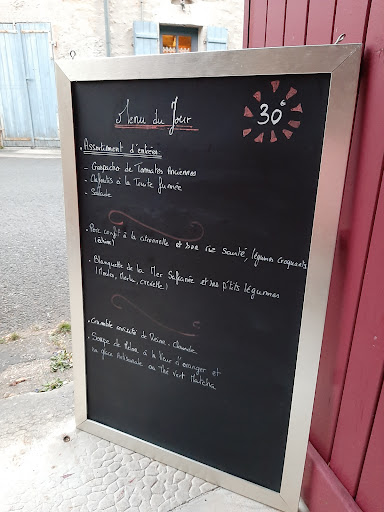 Menu du Jour
30€
• Assortiment d'entrées:
- Gaspacho de Tomates Anciennes
- Clafoutis à la Truite fumée
- Salade
• Porc confit à la citronnelle et son riz sauté, légumes croquants
• Blanquette de la Mer Safranée et ses p'tits légumes
(Moules, Merlu, crevette)
• Crumble revisité de Reine-Claude
• Soupe de Melon à la fleur d'oranger et
sa glace Artisanale au Thé vert Matcha